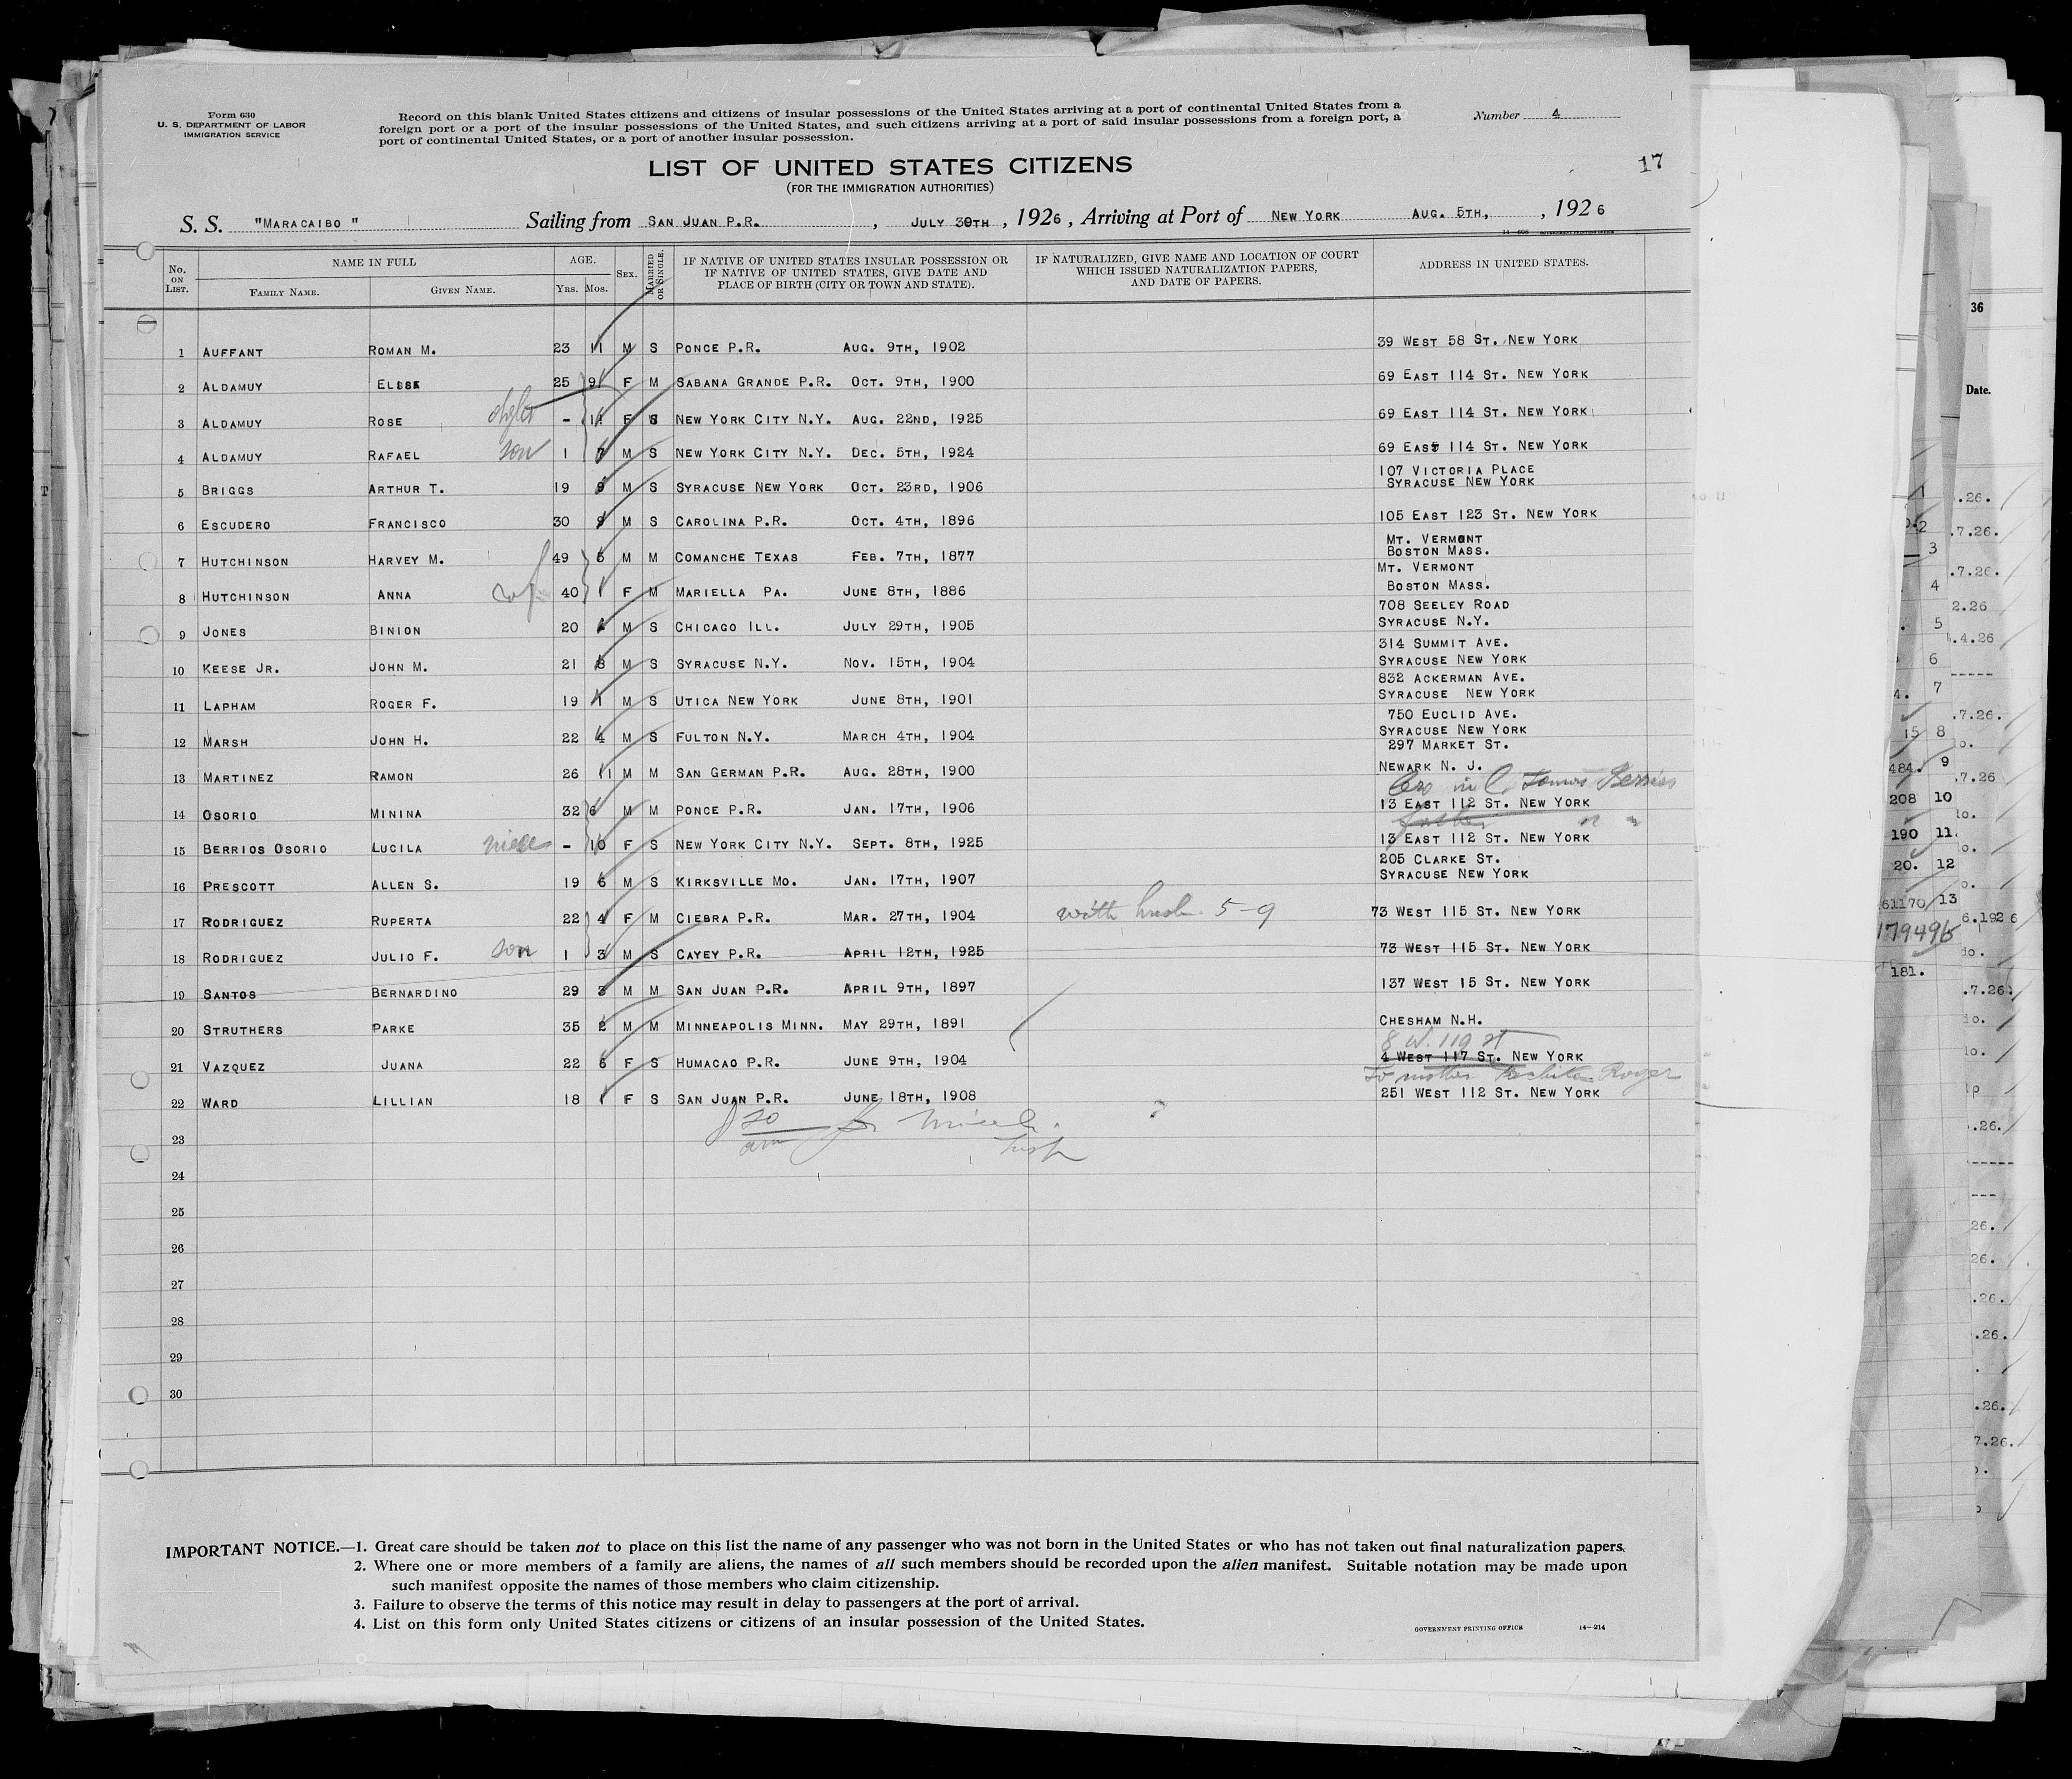 Form 630
U. S. DEPARTMENT OF LABOR
IMMIGRATION SERVICE
Record on this blank United States citizens and citizens of insular possessions of the United States arriving at a port of continental United States from a
foreign port or a port of the insular possessions of the United States, and such citizens arriving at a port of said insular possessions from a foreign port, a
port of continental United States, or a port of another insular possession.
Number 4
17
LIST OF UNITED STATES CITIZENS
(FOR THE IMMIGRATION AUTHORITIES)
S. S. "MARACAIBO" Sailing from SAN JUAN P.R. , JULY 30TH , 1926 , Arriving at Port of NEW YORK AUG. 5TH, , 1926
No. ON LIST. NAME IN FULL FAMILY NAME. GIVEN NAME. AGE. YRS. MOS. SEX. MARRIED OR SINGLE. IF NATIVE OF UNITED STATES INSULAR POSSESSION OR IF NATIVE OF UNITED STATES, GIVE DATE AND PLACE OF BIRTH (CITY OR TOWN AND STATE). IF NATURALIZED, GIVE NAME AND LOCATION OF COURT WHICH ISSUED NATURALIZATION PAPERS, AND DATE OF PAPERS. ADDRESS IN UNITED STATES.
1 AUFFANT ROMAN M. 23 11 M S PONCE P.R. AUG. 9TH, 1902 39 WEST 58 ST. NEW YORK
2 ALDAMUY ELISE 25 9 F M SABANA GRANDE P.R. OCT. 9TH, 1900 69 EAST 114 ST. NEW YORK
3 ALDAMUY ROSE - 11 F S NEW YORK CITY N.Y. AUG. 22ND, 1925 69 EAST 114 ST. NEW YORK
4 ALDAMUY RAFAEL son 1 7 M S NEW YORK CITY N.Y. DEC. 5TH, 1924 69 EAST 114 ST. NEW YORK
5 BRIGGS ARTHUR T. 19 9 M S SYRACUSE NEW YORK OCT. 23RD, 1906 107 VICTORIA PLACE SYRACUSE NEW YORK
6 ESCUDERO FRANCISCO 30 9 M S CAROLINA P.R. OCT. 4TH, 1896 105 EAST 123 ST. NEW YORK
7 HUTCHINSON HARVEY M. 49 5 M M COMANCHE TEXAS FEB. 7TH, 1877 MT. VERMONT BOSTON MASS.
8 HUTCHINSON ANNA wf 40 1 F M MARIELLA PA. JUNE 8TH, 1886 MT. VERMONT BOSTON MASS.
9 JONES BINION 20 M S CHICAGO ILL. JULY 29TH, 1905 708 SEELEY ROAD SYRACUSE N.Y.
10 KEESE JR. JOHN M. 21 8 M S SYRACUSE N.Y. NOV. 15TH, 1904 314 SUMMIT AVE. SYRACUSE NEW YORK
11 LAPHAM ROGER F. 19 1 M S UTICA NEW YORK JUNE 8TH, 1901 832 ACKERMAN AVE. SYRACUSE NEW YORK
12 MARSH JOHN H. 22 4 M S FULTON N.Y. MARCH 4TH, 1904 750 EUCLID AVE. SYRACUSE NEW YORK
13 MARTINEZ RAMON 26 11 M M SAN GERMAN P.R. AUG. 28TH, 1900 297 MARKET ST. NEWARK N. J.
14 OSORIO MININA 32 6 M M PONCE P.R. JAN. 17TH, 1906 13 EAST 112 ST. NEW YORK
15 BERRIOS OSORIO LUCILA niece - 10 F S NEW YORK CITY N.Y. SEPT. 8TH, 1925 13 EAST 112 ST. NEW YORK
16 PRESCOTT ALLEN S. 19 6 M S KIRKSVILLE MO. JAN. 17TH, 1907 205 CLARKE ST. SYRACUSE NEW YORK
17 RODRIGUEZ RUPERTA 22 4 F M CIEBRA P.R. MAR. 27TH, 1904 with husb. 5-9 73 WEST 115 ST. NEW YORK
18 RODRIGUEZ JULIO F. son 1 3 M S CAYEY P.R. APRIL 12TH, 1925 73 WEST 115 ST. NEW YORK
19 SANTOS BERNARDINO 29 3 M M SAN JUAN P.R. APRIL 9TH, 1897 137 WEST 15 ST. NEW YORK
20 STRUTHERS PARKE 35 2 M M MINNEAPOLIS MINN. MAY 29TH, 1891 CHESHAM N.H.
8 W. 119 st
21 VAZQUEZ JUANA 22 6 F S HUMACAO P.R. JUNE 9TH, 1904 4 WEST 117 ST. NEW YORK
To mother
22 WARD LILLIAN 18 1 F S SAN JUAN P.R. JUNE 18TH, 1908 251 WEST 112 ST. NEW YORK
23
24
25
26
27
28
29
30
IMPORTANT NOTICE.—1. Great care should be taken not to place on this list the name of any passenger who was not born in the United States or who has not taken out final naturalization papers.
2. Where one or more members of a family are aliens, the names of all such members should be recorded upon the alien manifest. Suitable notation may be made upon
such manifest opposite the names of those members who claim citizenship.
3. Failure to observe the terms of this notice may result in delay to passengers at the port of arrival.
4. List on this form only United States citizens or citizens of an insular possession of the United States.
GOVERNMENT PRINTING OFFICE 14—214
36
Date.